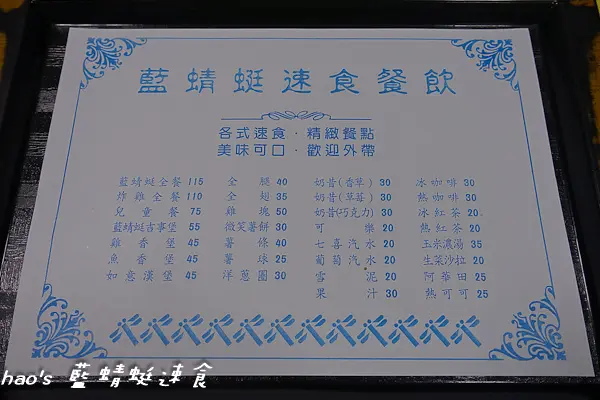 藍蜻蜓速食餐飲
各式速食．精緻餐點
美味可口．歡迎外帶
藍蜻蜓全餐 115 全腿 40 奶昔(香草) 30 冰咖啡 30
炸雞全餐 110 全翅 35 奶昔(草莓) 30 熱咖啡 30
兒童餐 75 雞塊 50 奶昔(巧克力) 30 冰紅茶 20
藍蜻蜓古事堡 55 微笑薯餅 30 可樂 20 熱紅茶 20
雞香堡 45 薯條 40 七喜汽水 20 玉米濃湯 35
魚香堡 45 薯球 25 葡萄汽水 20 生菜沙拉 20
如意漢堡 45 洋蔥圈 30 雪泥 20 阿華田 25
果汁 30 熱可可 25
hao's 藍蜻蜓速食